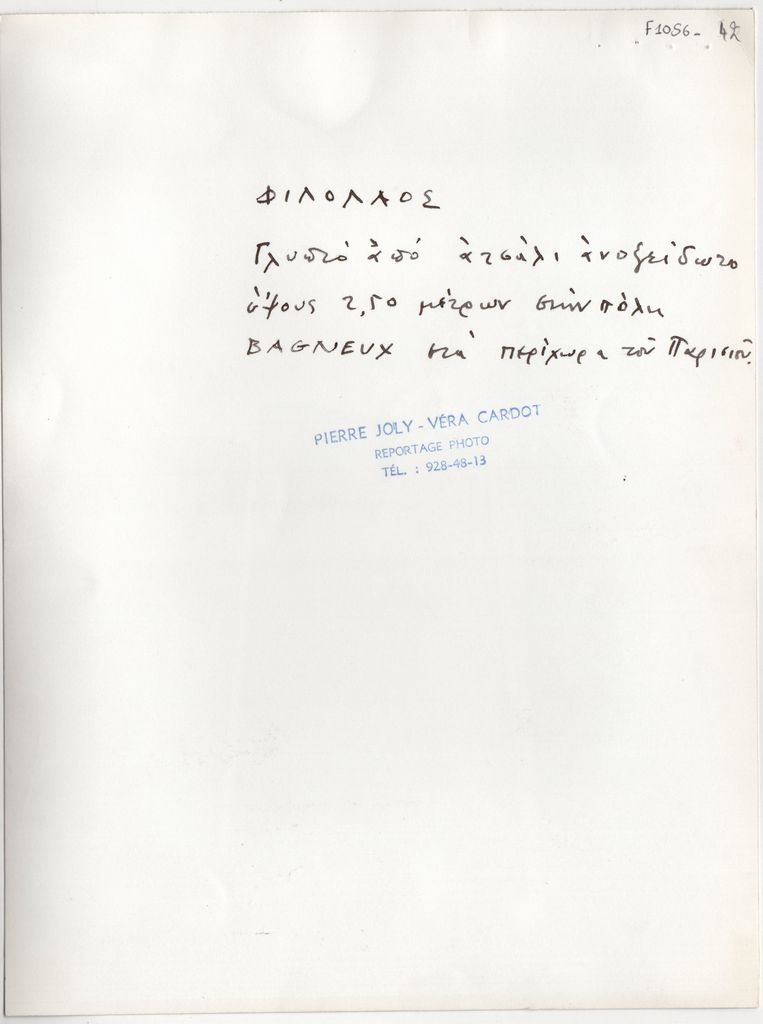 F1056- 42
ΦΙΛΟΛΑΟΣ
Γλυπτό ἀπό ἀτσάλι ἀνοξείδωτο
ὕψους 2,50 μέτρων στὴν πόλη
BAGNEUX στά περίχωρα τοῦ Παρισιοῦ.
PIERRE JOLY - VÉRA CARDOT
REPORTAGE PHOTO
TÉL. : 928-48-13